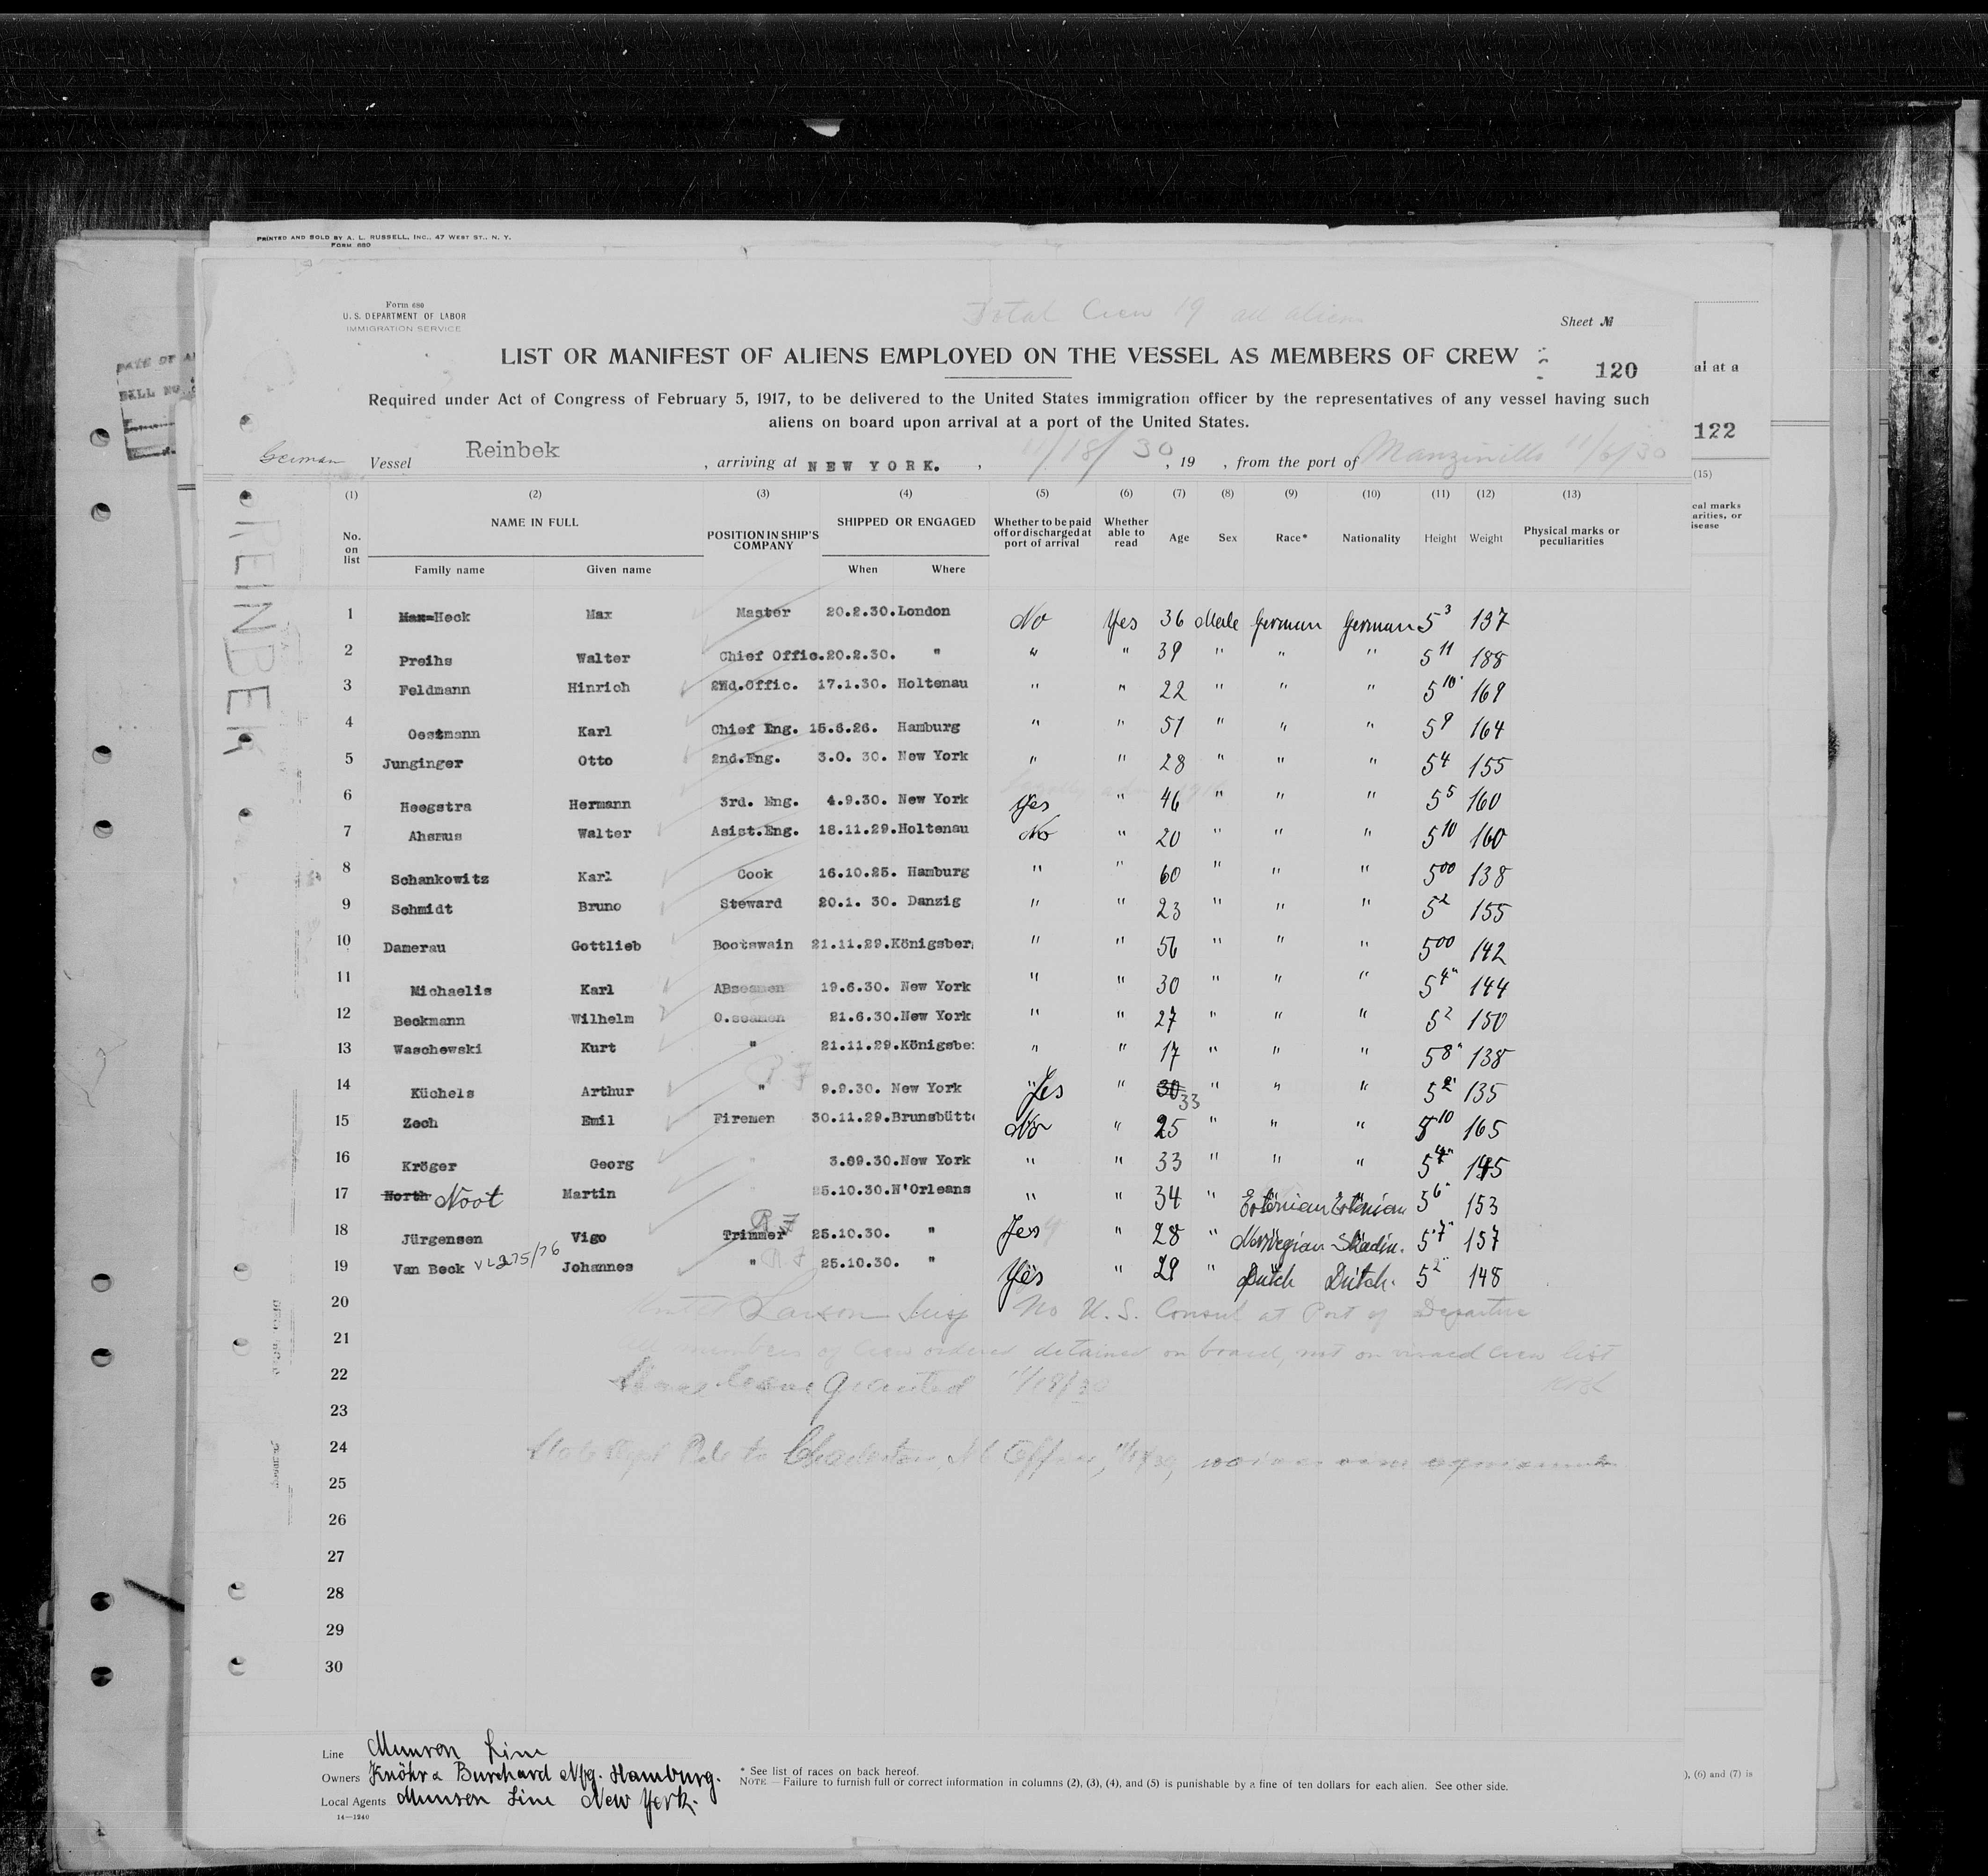 PRINTED AND SOLD BY A. L. RUSSELL, INC., 47 WEST ST., N. Y.
FORM 680
Form 680
U. S. DEPARTMENT OF LABOR
IMMIGRATION SERVICE
Total Crew 19 all aliens
Sheet №
LIST OR MANIFEST OF ALIENS EMPLOYED ON THE VESSEL AS MEMBERS OF CREW
120
Required under Act of Congress of February 5, 1917, to be delivered to the United States immigration officer by the representatives of any vessel having such
aliens on board upon arrival at a port of the United States.
German Vessel Reinbek, arriving at NEW YORK., 11/18/30, 19 , from the port of Manzinillo 11/6/30
al at a
122
(15)
cal marks
arities, or
isease
DATE OF A
BILL NO.
REINBEK
(1) (2) (3) (4) (5) (6) (7) (8) (9) (10) (11) (12) (13)
No. on list NAME IN FULL POSITION IN SHIP'S COMPANY SHIPPED OR ENGAGED Whether to be paid off or discharged at port of arrival Whether able to read Age Sex Race* Nationality Height Weight Physical marks or peculiarities
Family name Given name When Where
1 Max=Heck Max Master 20.2.30. London No Yes 36 Male German German 5 3 137
2 Preihs Walter Chief Offic. 20.2.30. " " " 39 " " " 5 11 188
3 Feldmann Hinrich 2nd.Offic. 17.1.30. Holtenau " " 22 " " " 5 10 169
4 Oestmann Karl Chief Eng. 15.6.26. Hamburg " " 51 " " " 5 9 164
5 Junginger Otto 2nd.Eng. 3.0. 30. New York " " 28 " " " 5 4 155
6 Heegstra Hermann 3rd. Eng. 4.9.30. New York Yes " 46 " " " 5 5 160
7 Ahsmus Walter Asist.Eng. 18.11.29. Holtenau No " 20 " " " 5 10 160
8 Schankowitz Karl Cook 16.10.25. Hamburg " " 60 " " " 5 00 138
9 Schmidt Bruno Steward 20.1. 30. Danzig " " 23 " " " 5 2 155
10 Damerau Gottlieb Bootswain 21.11.29. Königsber " " 56 " " " 5 00 142
11 Michaelis Karl ABseamen 19.6.30. New York " " 30 " " " 5 4" 144
12 Beckmann Wilhelm O.seamen 21.6.30. New York " " 27 " " " 5 2 150
13 Waschewski Kurt " 21.11.29. Königsbe " " 17 " " " 5 8" 138
14 Küchels Arthur " 9.9.30. New York Yes " 30 33 " " " 5 2" 135
15 Zech Emil Firemen 30.11.29. Brunsbütt No " 25 " " " 5 10 165
16 Kröger Georg " 3.09.30. New York " " 33 " " " 5 4" 145
17 North Noot Martin " 25.10.30. N'Orleans " " 34 " Estonian Estonian 5 6" 153
18 Jürgensen Vigo Trimmer 25.10.30. " Yes " 28 " Norwegian Skadin. 5 7" 157
19 Van Beck VL275/76 Johannes " 25.10.30. " Yes " 29 " Dutch Dutch. 5 2" 148
20 Larson Insp No U. S. Consul at Port of Departure
21 members of crew ordered detained on board, not on visaed crew list
22 Shore leave granted 11/18/30
23
24 to Charleston,
25
26
27
28
29
30
Line Munson Line
Owners Knöhr & Burchard Nfg. Hamburg.
Local Agents Munson Line New York.
14—1240
* See list of races on back hereof.
NOTE — Failure to furnish full or correct information in columns (2), (3), (4), and (5) is punishable by a fine of ten dollars for each alien. See other side.
), (6) and (7) is